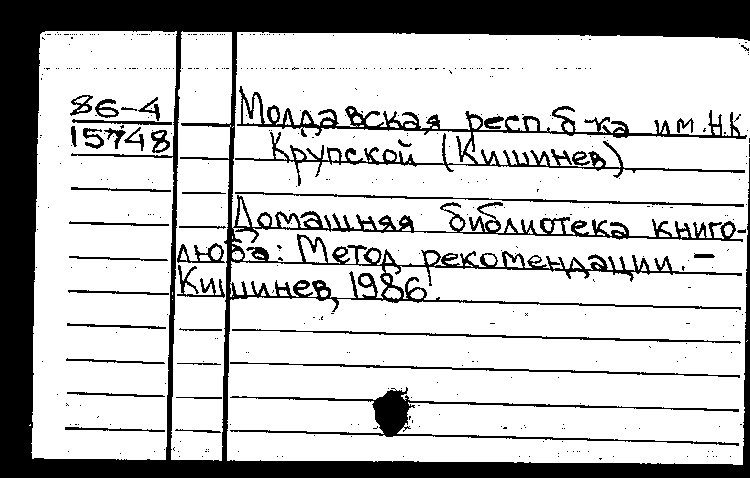 86-4
15748
Молдавская респ. б-ка им. Н.К.
Крупской (Кишинев).
Домашняя библиотека книго-
люба: Метод. рекомендации. —
Кишинев, 1986.